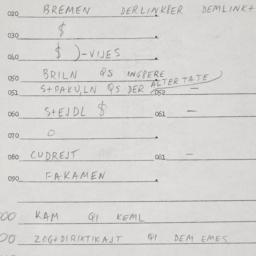 020 BREMEN DERLINKBER DEMLINK+
030 $
040 $ )-VIJES
050 BRILN QS INSPERE
051 S+DAKU,LN QS DER ALTERTATE 052 -
060 S+EJDL $ 061 -
070 O
080 CUDREJT 081 -
090 FAKAMEN
00 KAM QI KEML
00 ZOGEDIRIKTIKAJT QI DEM EMES